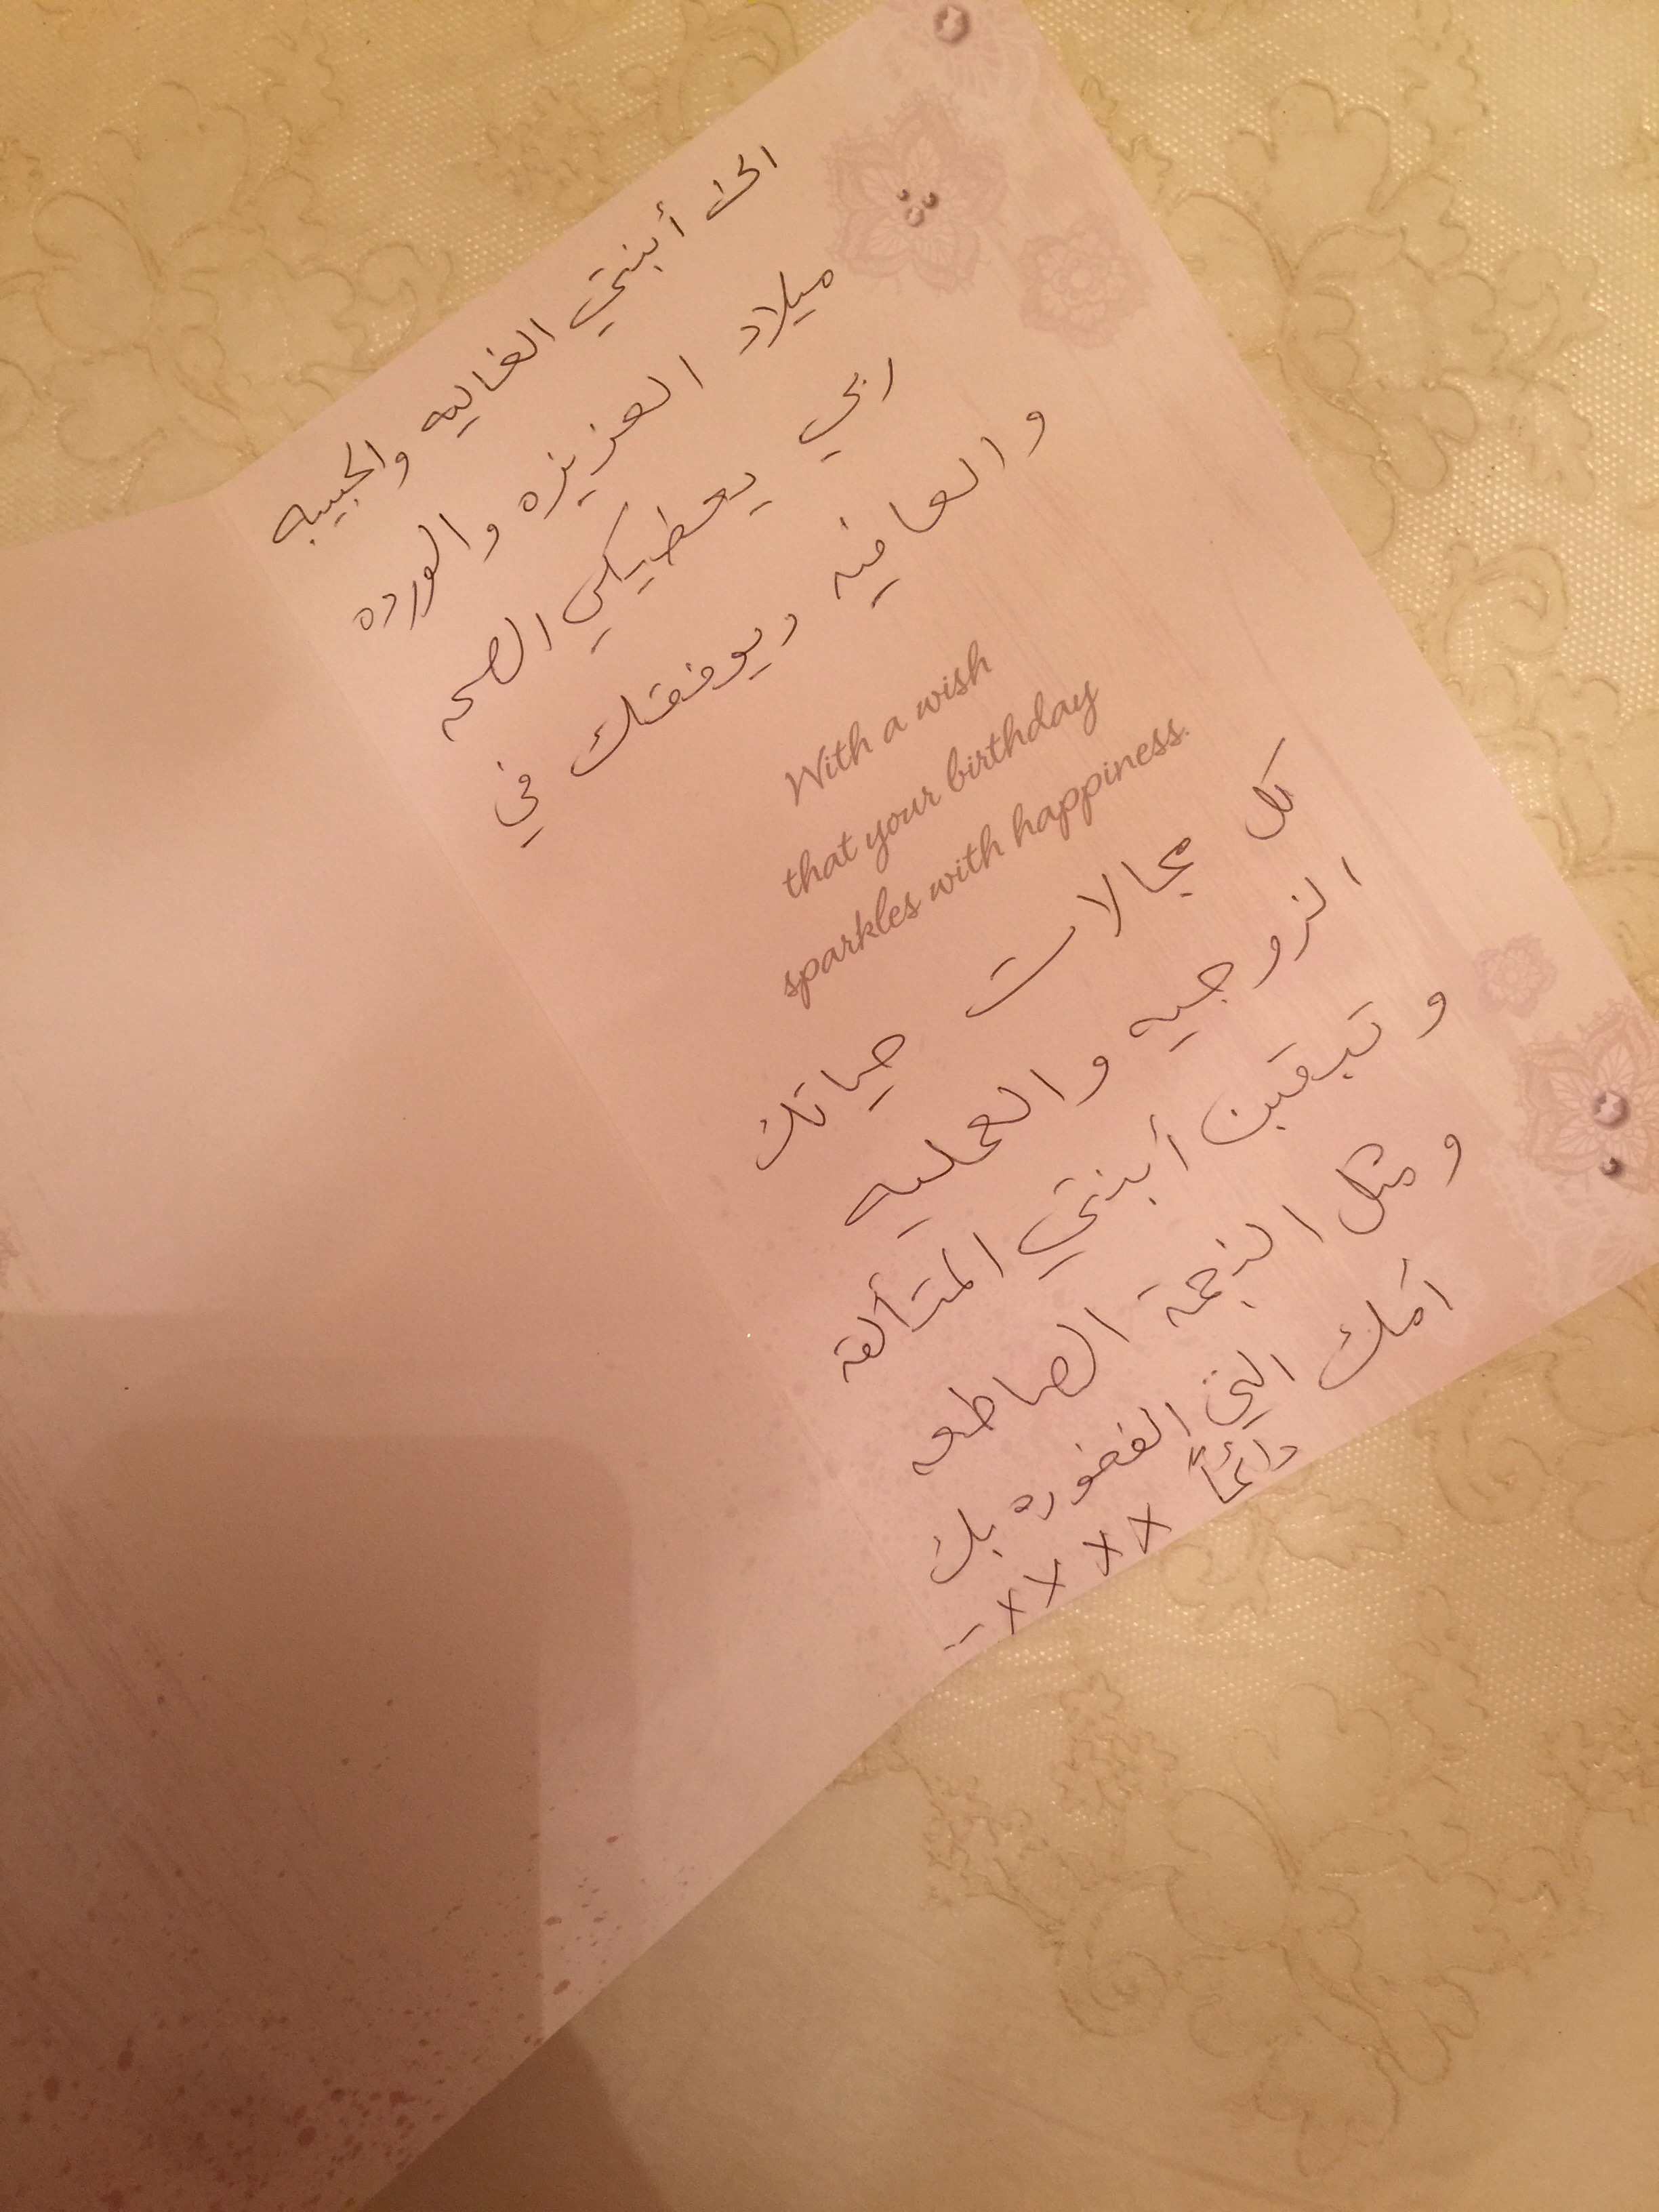 الى أبنتي الغاليه والحبيبه
ميلاد العزيزه والورده
ربي يعطيكي الصحه
والعافيه ويوفقك في
With a wish
that your birthday
sparkles with happiness.
كل مجالات حياتك
الزوجيه والعمليه
وتبقين أبنتي المتألقه
ومثل النجمة الصاطعه
أمك التي الفخوره بك
دائماً x x x x